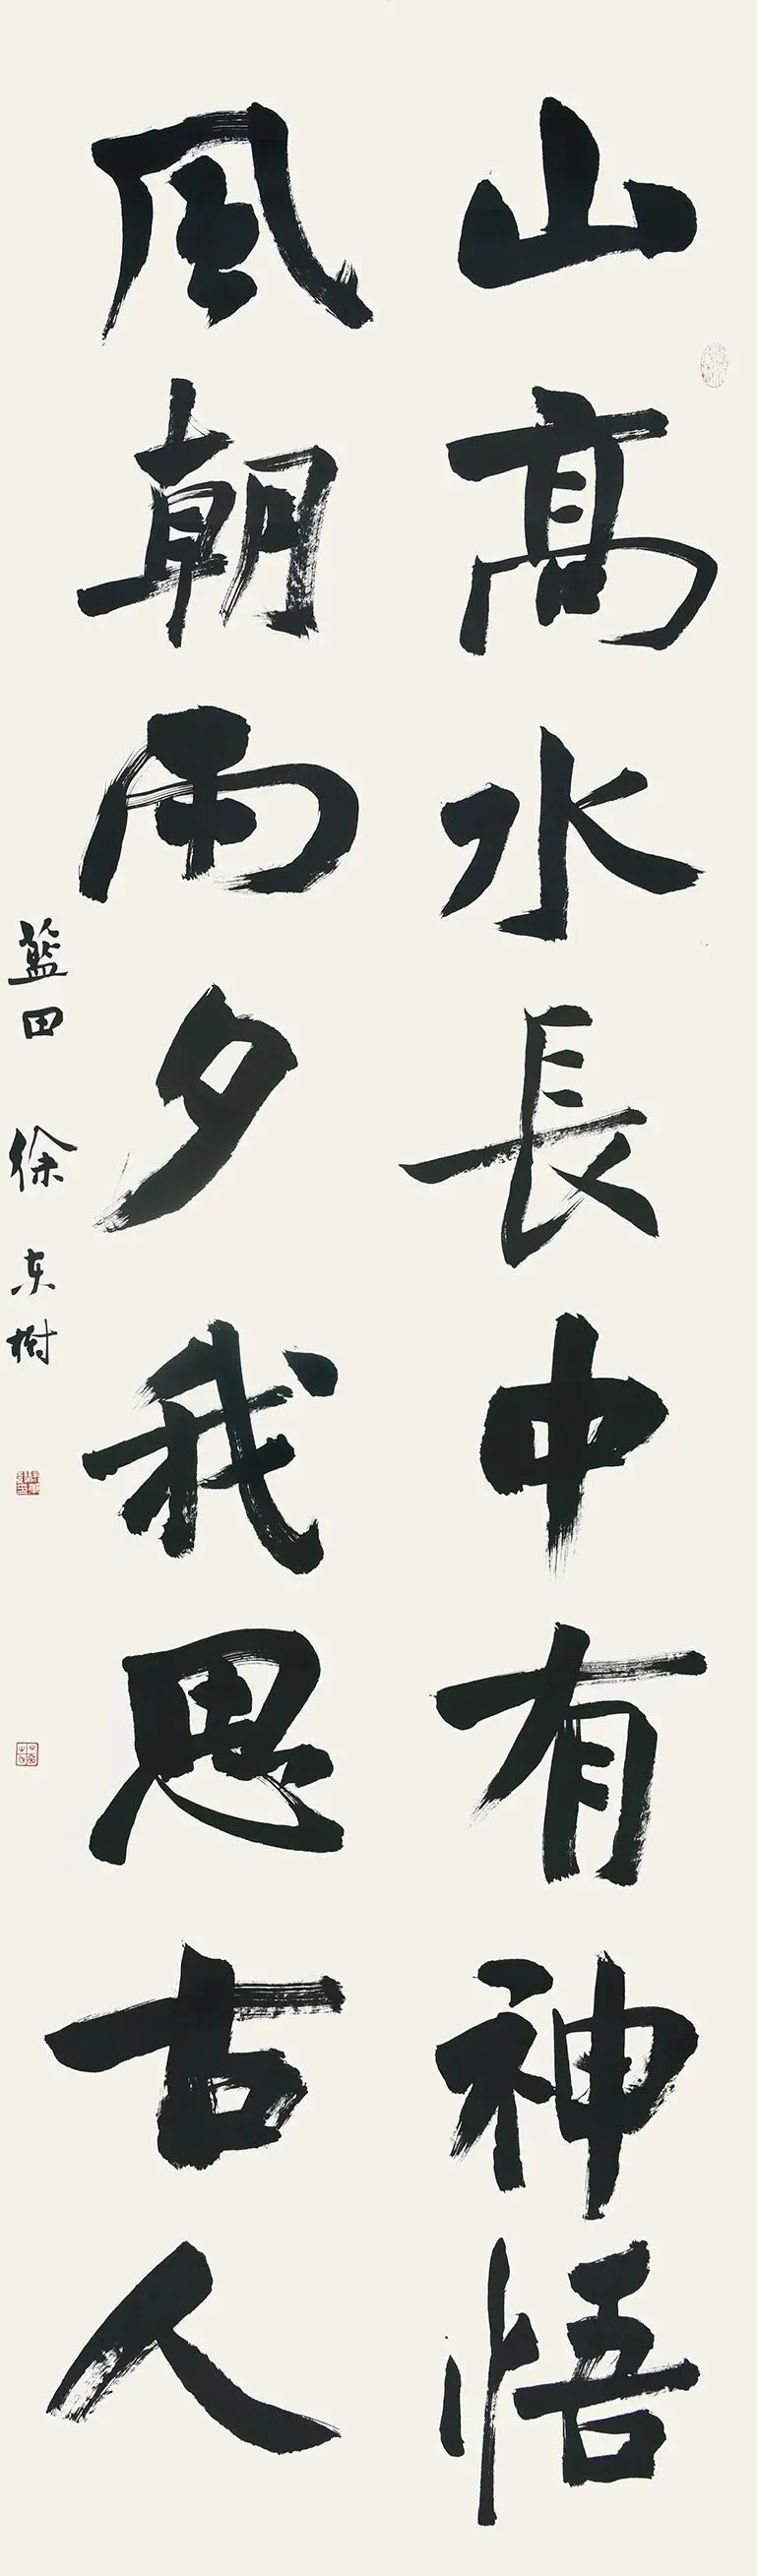 山高水長中有神悟
風朝雨夕我思古人
藍田 徐东樹